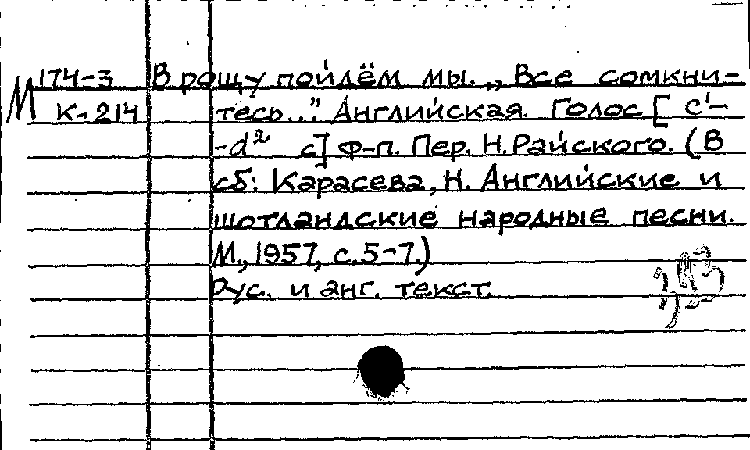 М 174-3 В рощу пойдём мы. „Все сомкни-
К-214 тесь..." Английская. Голос [c¹-
-d² с] ф-п. Пер. Н. Райского. (В
сб: Карасева, Н. Английские и
шотландские народные песни.
М., 1957, с. 5-7.)
Рус. и анг. текст.